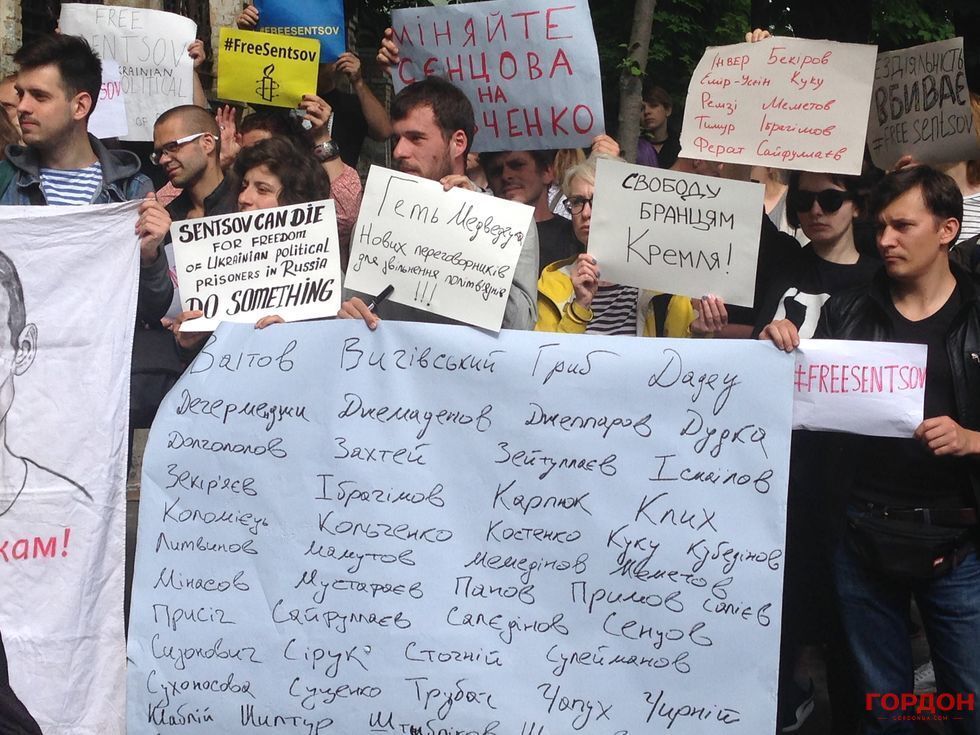 FREE
SENTSOV
UKRAINIAN
POLITICAL
OF
#FREESENTSOV
#FreeSentsov
МІНЯЙТЕ
СЄНЦОВА
НА
ЧЕНКО
Інвер Бекіров
Емір-Усеїн Куку
Ремзі Меметов
Тимур Ібрагімов
Ферат Сайфуллаєв
ЕЗДІЯЛЬНІСТЬ
ВБИВАЄ
#FREE SENTSOV
SENTSOV CAN DIE
FOR FREEDOM
OF UKRAINIAN POLITICAL
PRISONERS IN RUSSIA
DO SOMETHING
Геть Медведчука
Нових переговорників
для звільнення політв'язнів
!!!
СВОБОДУ
БРАНЦЯМ
Кремля!
#FREESENTSOV
кам!
Ваітов Вигівський Гриб Дадеу
Дегермеджи Джемаденов Джеппаров Дудка
Долгополов Захтей Зейтуллаєв Ісмаілов
Зекір'яєв Ібрагімов Карпюк Клих
Коломієць Кольченко Костенко Куку Кубедінов
Литвинов Мамутов Мемедінов Меметов
Мінасов Мустафаєв Панов Примов Салієв
Присіч Сайфуллаєв Салєдінов Сенцов
Сизонович Сірук Стогній Сулейманов
Сухоносова Сущенко Трубач Чапух Чирній
Шаблій Шиптур Штибліков
ГОРДОН
GORDONUA.COM